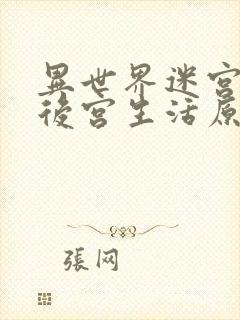 異世界迷宮
後宮生活原
張网